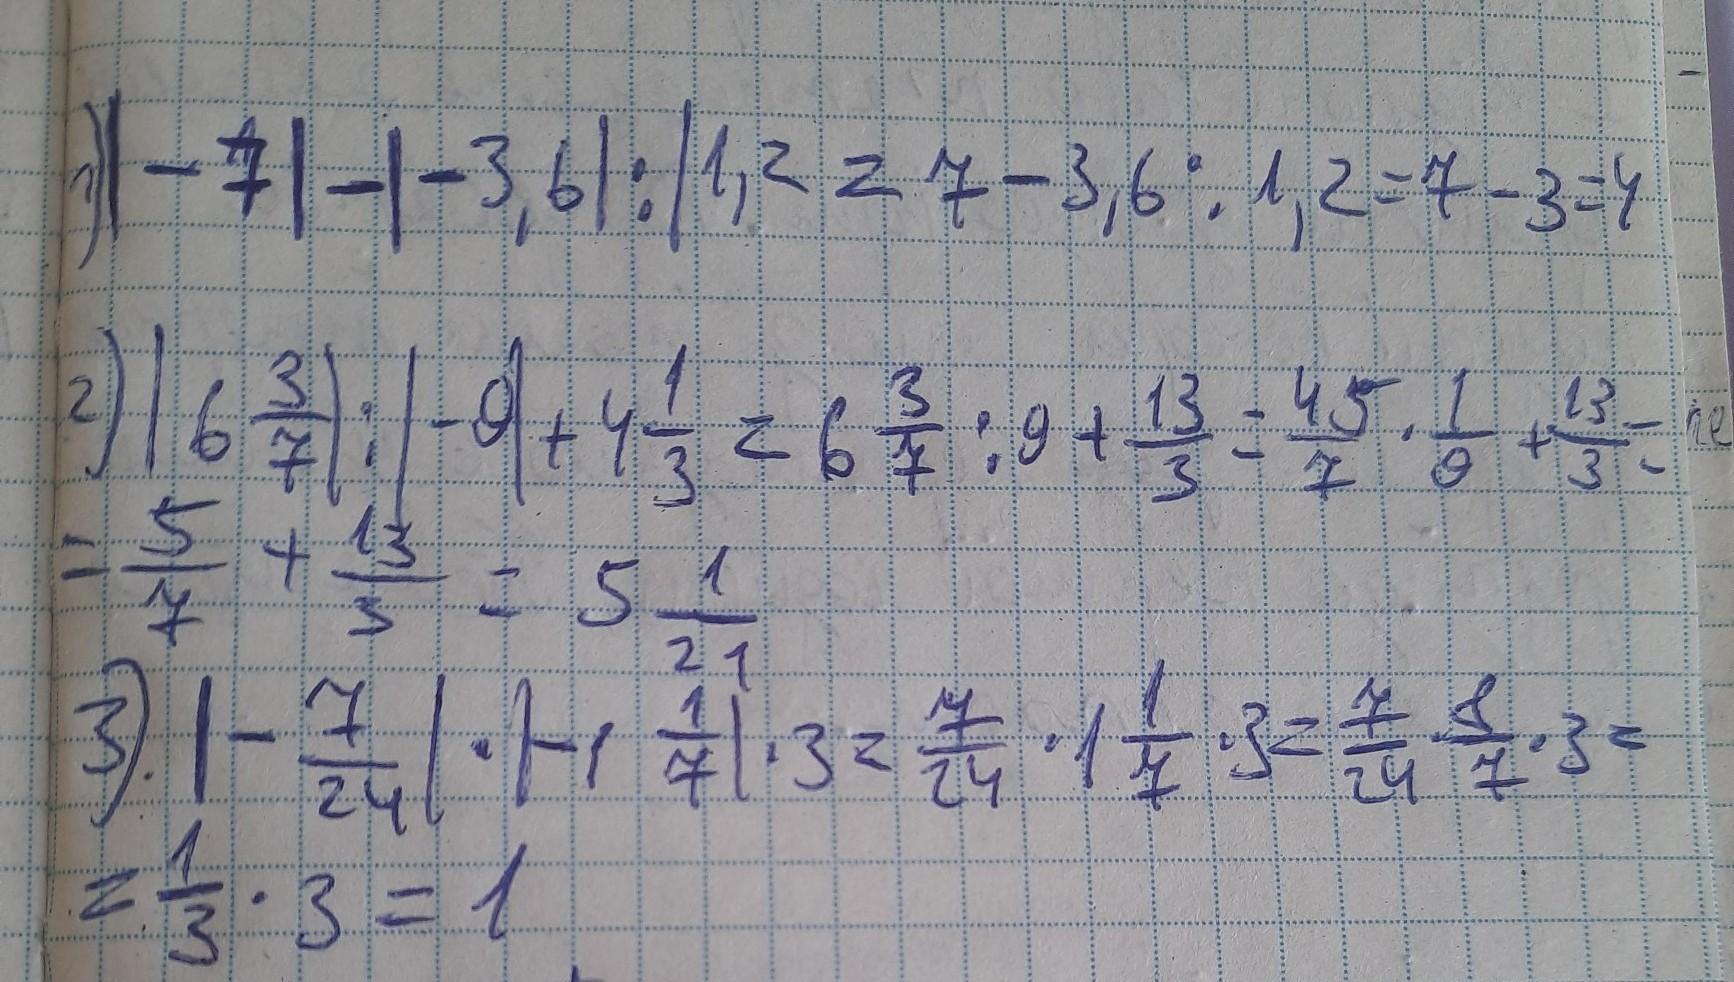 1) |-7|-|-3,6|:|1,2 = 7-3,6:1,2=7-3=4
2) |6 3/7|:|-9|+4 1/3 = 6 3/7 :9+ 13/3 = 45/7 · 1/9 + 13/3 =
= 5/7 + 13/3 = 5 1/21
3). |- 7/24|·|-1 1/7|·3= 7/24 ·1 1/7 ·3= 7/24 · 8/7 ·3=
= 1/3 · 3 = 1